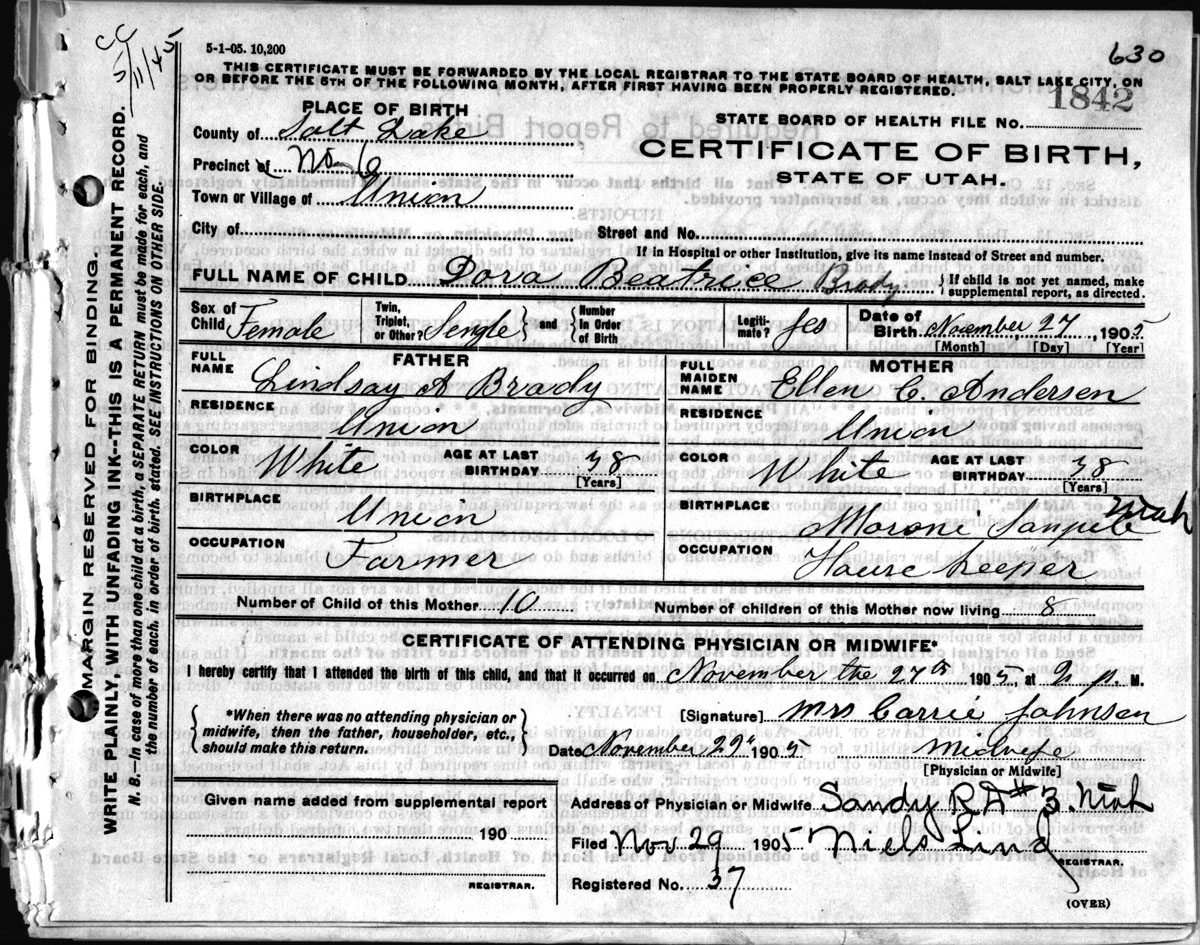 CC 5/11/45
5-1-05. 10,200
630
THIS CERTIFICATE MUST BE FORWARDED BY THE LOCAL REGISTRAR TO THE STATE BOARD OF HEALTH, SALT LAKE CITY, ON
OR BEFORE THE 5TH OF THE FOLLOWING MONTH, AFTER FIRST HAVING BEEN PROPERLY REGISTERED.
1842
PLACE OF BIRTH
STATE BOARD OF HEALTH FILE NO.
County of Salt Lake
CERTIFICATE OF BIRTH,
STATE OF UTAH.
Precinct of No 6
Town or Village of Union
City of
Street and No.
If in Hospital or other Institution, give its name instead of Street and number.
FULL NAME OF CHILD Dora Beatrice Brady { If child is not yet named, make
supplemental report, as directed.
Sex of Child Female
Twin, Triplet, or Other? Single } and { Number in Order of Birth
Legitimate? Yes
Date of Birth November 27, 1905
[Month] [Day] [Year]
FATHER
FULL NAME Lindsay A Brady
RESIDENCE Union
COLOR White AGE AT LAST BIRTHDAY 38
[Years]
BIRTHPLACE Union
OCCUPATION Farmer
MOTHER
FULL MAIDEN NAME Ellen C. Andersen
RESIDENCE Union
COLOR White AGE AT LAST BIRTHDAY 38
[Years]
BIRTHPLACE Moroni Sanpete Utah
OCCUPATION House keeper
Number of Child of this Mother 10
Number of children of this Mother now living 8
CERTIFICATE OF ATTENDING PHYSICIAN OR MIDWIFE*
I hereby certify that I attended the birth of this child, and that it occurred on November the 27th 1905, at 2 p. M.
{ *When there was no attending physician or
midwife, then the father, householder, etc.,
should make this return. }
[Signature] Mrs Carrie Johnsen
Date November 29th 1905
Midwife
[Physician or Midwife]
Given name added from supplemental report
190
REGISTRAR.
Address of Physician or Midwife Sandy R D #3. Utah
Filed Nov 29 1905 Niels Lind
REGISTRAR.
Registered No. 37
(OVER)
MARGIN RESERVED FOR BINDING.
WRITE PLAINLY, WITH UNFADING INK--THIS IS A PERMANENT RECORD.
N. B.—In case of more than one child at a birth, a SEPARATE RETURN must be made for each, and
the number of each, in order of birth, stated. SEE INSTRUCTIONS ON OTHER SIDE.